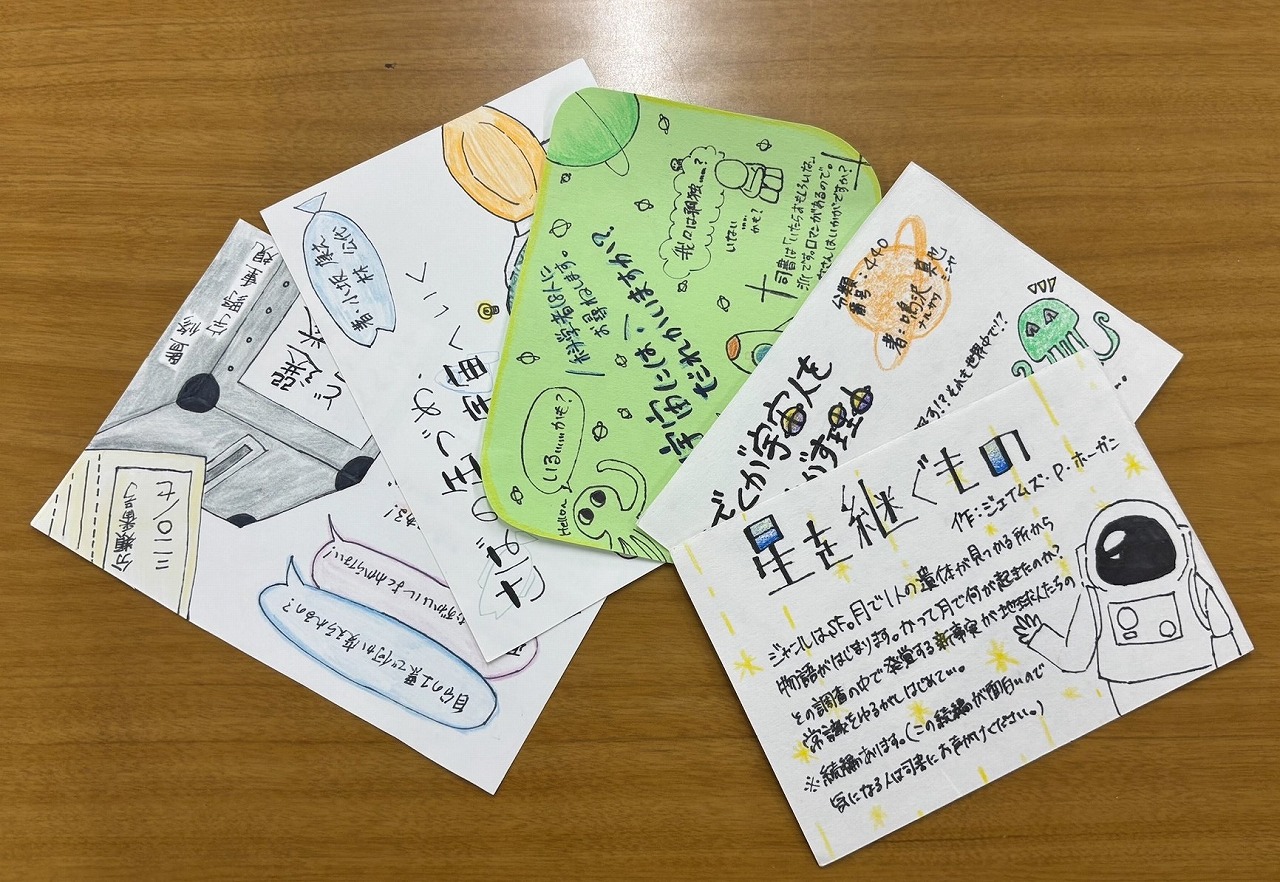 星を継ぐもの
作:ジェイムズ・P・ホーガン
ジャンルはSF。月で1人の遺体が見つかる所から
物語がはじまります。かつて月で何が起きたのか?
その調査の中で発覚する新事実が地球人たちの
常識をゆるがしはじめてい。
※続編があります。(この続編が面白いので
気になる人は司書にお声がけください。)
分類
番号:440
著:鳴沢 真也
ナルサワ シンヤ
ぼくが宇宙人を
さがす理由
です!?それも世界中で!?
科学者18人に
お尋ねします。
宇宙には
だれかいますか?
我々は孤独……?
いない
……
かも?
司書は「いたらおもしろいな」
派です。ロマンがあるので。
みなさんはいかがですか?
いる……かも?
Helloん
著・小坂 康之
林 公代
さばの缶づめ、
宇宙へいく
監修
選
ど
分類番号
三一〇/七
自分の1票で何が変えられるの?